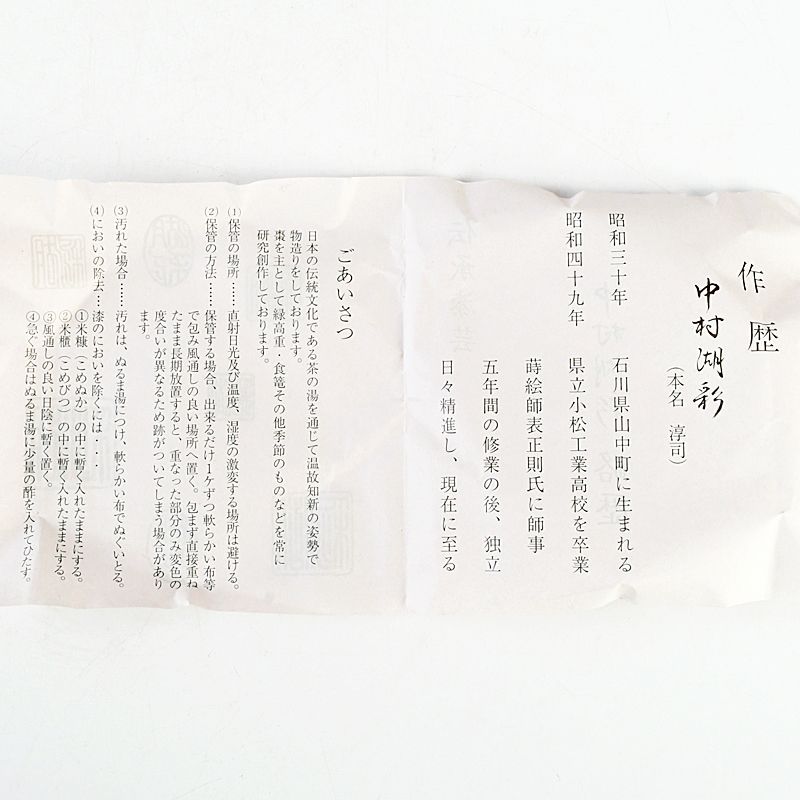 作歴
中村湖彩
（本名　淳司）
昭和三十年　石川県山中町に生まれる
昭和四十九年　県立小松工業高校を卒業
蒔絵師表正則氏に師事
五年間の修業の後、独立
日々精進し、現在に至る
ごあいさつ
日本の伝統文化である茶の湯を通じて温故知新の姿勢で
物造りをしております。
棗を主として縁高重・食篭その他季節のものなどを常に
研究創作しております。
⑴ 保管の場所……直射日光及び温度、湿度の激変する場所は避ける。
⑵ 保管の方法……保管する場合、出来るだけ１ケずつ軟らかい布等
で包み風通しの良い場所へ置く。包まず直接重ね
たまま長期放置すると、重なった部分のみ変色の
度合いが異なるため跡がついてしまう場合があり
ます。
⑶ 汚れた場合……汚れは、ぬるま湯につけ、軟らかい布でぬぐいとる。
⑷ においの除去…漆のにおいを除くには・・・
①米糠（こめぬか）の中に暫く入れたままにする。
②米櫃（こめびつ）の中に暫く入れたままにする。
③風通しの良い日陰に暫く置く。
④急ぐ場合はぬるま湯に少量の酢を入れてひたす。